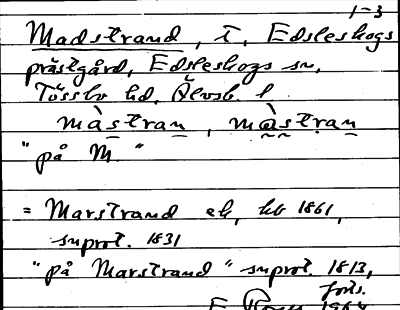 1-3
Madstrand, t, Edsleskogs
prästgård, Edsleskogs sn,
Tössbo hd, Älvsb. l
màstran, màstran
"på M."
= Marstrand ek, hb 1861,
snprot. 1831
"på Marstrand" snprot. 1813,
forts.